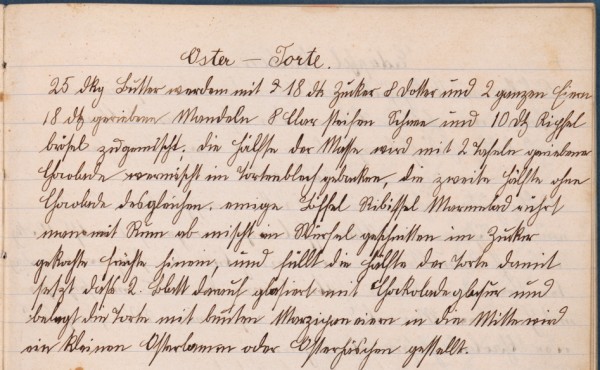 Oster = Torte.
25 dkg Butter werden mit 18 dk Zucker 8 Dotter und 2 ganzen Eiern
18 dk geriebenen Mandeln 8 Klar steifen Schnee und 10 Dk Kipfel
brösel zugemischt, die Hälfte der Masse wird mit 2 Tafeln geriebene
Chocolade vermischt im Tortenblech gebacken, die zweite Hälfte ohne
Chocolade desgleichen. einige Löffel Ribissel Marmelad rührt
man mit Rum ab mischt in Würfel geschnitten im Zucker
gekochte Früchte hinein, und füllt die Hälfte der Torte damit
setzt das 2. Blatt darauf glasiert mit Chokoladeglasur und
belegt die Torte mit bunten Marzipaneiern in die Mitte wird
ein kleines Osterlamm oder Osterhäschen gestellt.